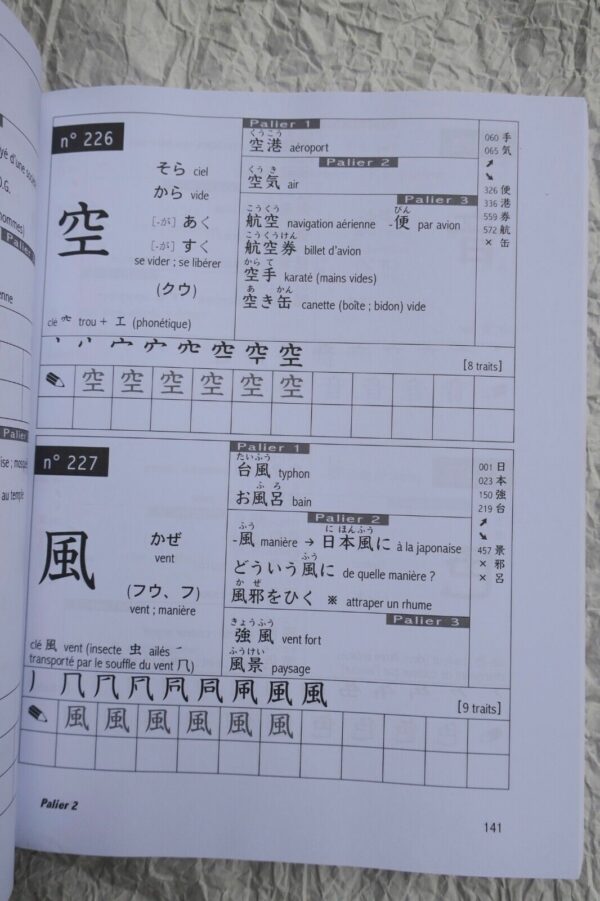 yé d'une socié
O.G.
hommes)
Palier
enne
Palier
ise ; mosquée
au temple
n° 226
空
そら ciel
から vide
[-が] あく
[-が] すく
se vider ; se libérer
(クウ)
clé 穴 trou + 工 (phonétique)
Palier 1
くうこう
空港 aéroport
Palier 2
くう き
空気 air
Palier 3
こうくう びん
航空 navigation aérienne -便 par avion
こうくうけん
航空券 billet d'avion
から て
空手 karaté (mains vides)
あ かん
空き缶 canette (boîte ; bidon) vide
060 手
065 気
326 便
336 港
559 券
572 航
× 缶
空
[8 traits]
空 空 空 空 空 空
n° 227
風
かぜ
vent
(フウ、フ)
vent ; manière
clé 風 vent (insecte 虫 ailés
transporté par le souffle du vent 几)
Palier 1
たいふう
台風 typhon
ふ ろ
お風呂 bain
Palier 2
ふう に ほんふう
-風 manière → 日本風に à la japonaise
ふう
どういう風に de quelle manière ?
か ぜ
風邪をひく ※ attraper un rhume
Palier 3
きょうふう
強風 vent fort
ふうけい
風景 paysage
001 日
023 本
150 強
219 台
457 景
× 邪
× 呂
風
[9 traits]
風 風 風 風 風 風
Palier 2
141